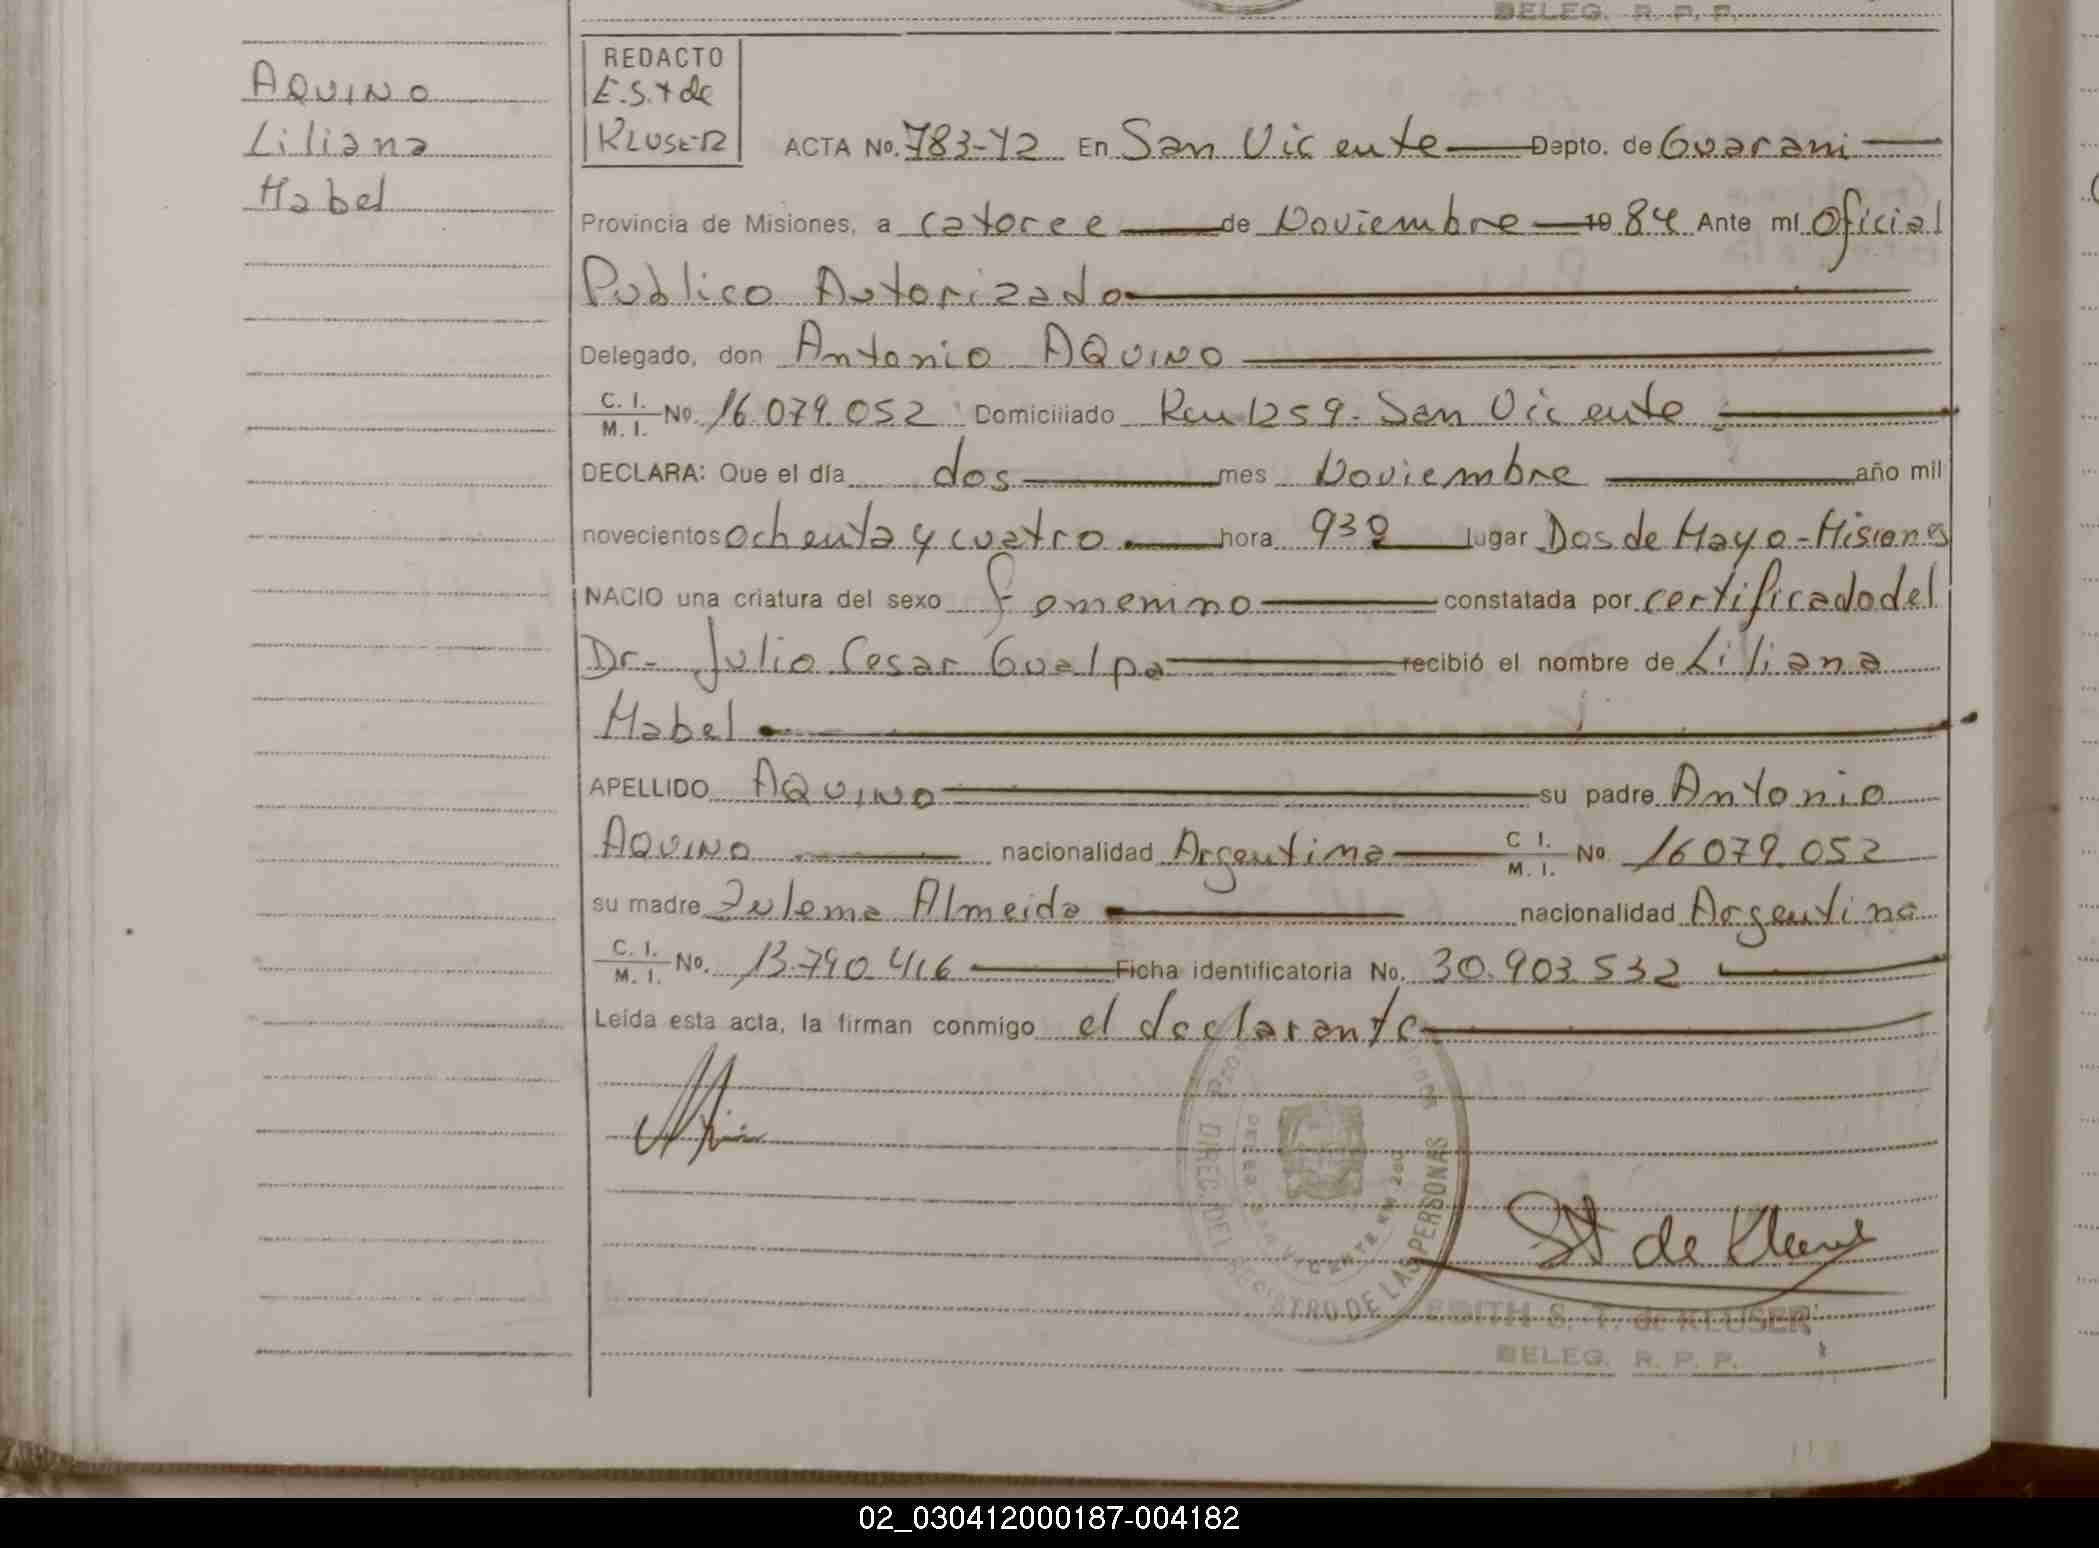 DELEG. R. P. P.
AQUINO
Liliana
Mabel
REDACTO
E.S.t de
KLUSER
ACTA No. 783-Y2 En San Vicente Depto. de Guarani
Provincia de Misiones, a catorce de Noviembre 19 84 Ante mi Oficial
Publico Autorizado
Delegado, don Antonio AQUINO
C. I. M. I. No. 16.079.052 Domiciliado Km 1259. San Vicente
DECLARA: Que el día dos mes Noviembre año mil
novecientos ochenta y cuatro hora 930 lugar Dos de Mayo-Misiones
NACIO una criatura del sexo femenino constatada por certificado del
Dr- Julio Cesar Gualpa recibió el nombre de Liliana
Mabel
APELLIDO AQUINO su padre Antonio
AQUINO nacionalidad Argentina C I. M. I. No 16079.052
su madre Zulema Almeida nacionalidad Argentina
C. I. M. I. No. 13.790.416 Ficha identificatoria No. 30.903.532
Leída esta acta, la firman conmigo el declarante
DIREC. DEL REGISTRO DE LAS PERSONAS
SAN VICENTE
St de Kluser
EDITH S. T. de KLUSER
DELEG. R. P. P.
02_030412000187-004182